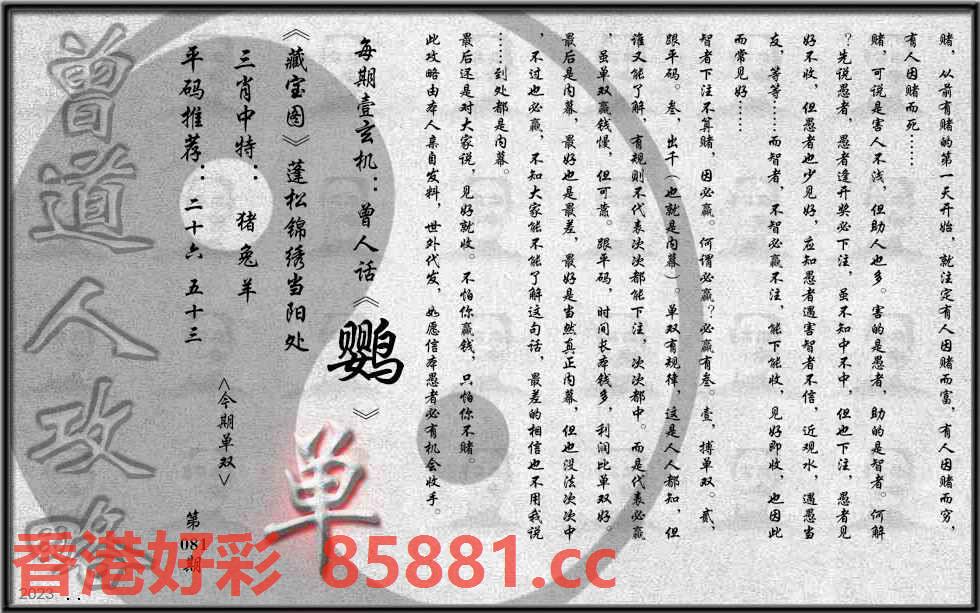 赌，从前有赌的第一天开始，就注定有人因赌而富，有人因赌而穷，
有人因赌而死……
赌，可说是害人不浅，但助人也多。害的是愚者，助的是智者。何解
？先说愚者，愚者逢开奖必下注，虽不知中不中，但也下注，愚者见
好不收，但愚者也少见好，应知愚者遇害智者不信，近观水，遇愚当
友，等等……而智者，不智必赢不注，能下能收，见好即收，也因此
而常见好……
智者下注不算赌，因必赢。何谓必赢？必赢有叁。壹，搏单双。贰，
跟平码。叁，出千（也就是内幕）。单双有规律，这是人人都知，但
谁又能了解，有规则不代表次次都能下注，次次都中。而是代表必赢
，虽单双赢钱慢，但可靠。跟平码，时间长本钱多，利润比单双好。
最后是内幕，最好也是最差，最好是当然真正内幕，但也没法次次中
，不过也必赢，不知大家能不能了解这句话，最差的相信也不用我说
……到处都是内幕。
最后还是对大家说，见好就收。不怕你赢钱，只怕你不赌。
此攻略由本人亲自发料，世外代发，如愿信本愚者必有机会收手。
每期壹玄机：曾人话《鹦》
《藏宝图》蓬松锦绣当阳处
三肖中特：猪兔羊
平码推荐：二十六 五十三
<今期单双>
单
第081期
曾道人攻略
香港好彩 85881.cc
2023